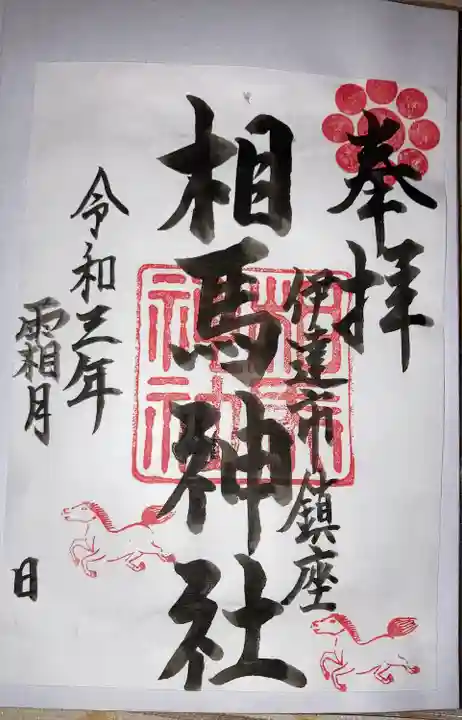 奉拝
伊達市鎮座
相馬神社
令和三年
霜月
日